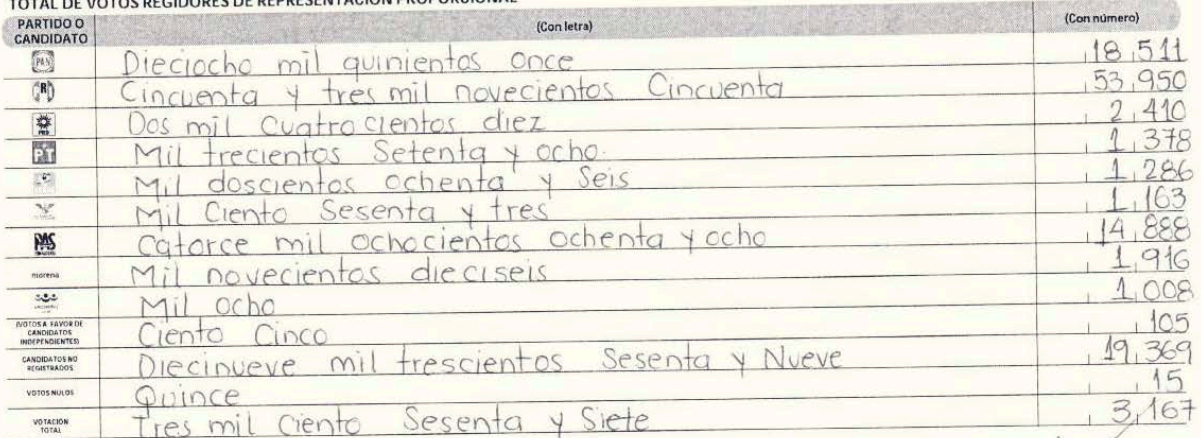 TOTAL DE VOTOS REGIDORES DE REPRESENTACIÓN PROPORCIONAL
PARTIDO O CANDIDATO (Con letra) (Con número)
PAN Dieciocho mil quinientos once 18,511
PRI Cincuenta y tres mil novecientos Cincuenta 53,950
PRD Dos mil cuatrocientos diez 2,410
PT Mil trecientos Setenta y ocho. 1,378
Mil doscientos ochenta y Seis 1,286
Mil Ciento Sesenta y tres 1,163
PAS Catorce mil ochocientos ochenta y ocho 14,888
morena Mil novecientos dieciseis 1,916
Mil ocho 1,008
(VOTOS A FAVOR DE CANDIDATOS INDEPENDIENTES) Ciento Cinco 105
CANDIDATOS NO REGISTRADOS Diecinueve mil trescientos Sesenta y Nueve 19,369
VOTOS NULOS Quince 15
VOTACIÓN TOTAL Tres mil Ciento Sesenta y Siete 3,167